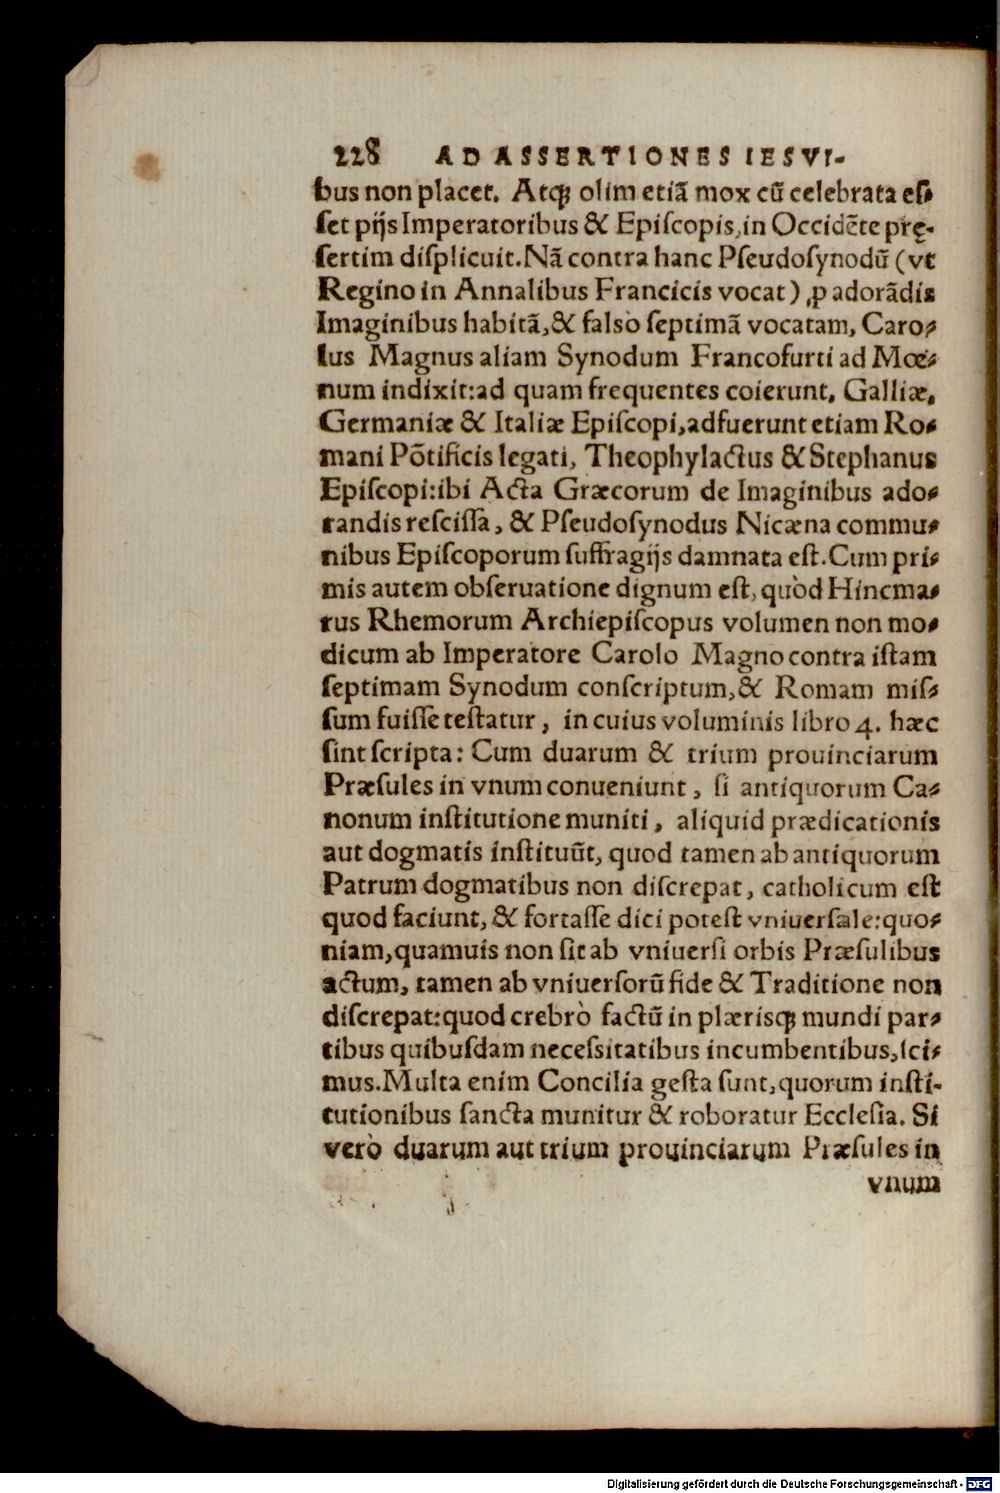 228 AD ASSERTIONES IESVI-
bus non placet. Atq; olim etiã mox cũ celebrata eſ-
ſet pijs Imperatoribus & Epiſcopis, in Occidẽte prę-
ſertim diſplicuit. Nã contra hanc Pſeudoſynodũ (vt
Regino in Annalibus Francicis vocat) ꝓ adorãdis
Imaginibus habitã, & falsò ſeptimã vocatam, Caro-
lus Magnus aliam Synodum Francofurti ad Mœ-
num indixit: ad quam frequentes coierunt, Galliæ,
Germaniæ & Italiæ Epiſcopi, adfuerunt etiam Ro-
mani Põtificis legati, Theophylactus & Stephanus
Epiſcopi: ibi Acta Græcorum de Imaginibus ado-
randis reſciſſa, & Pſeudoſynodus Nicæna commu-
nibus Epiſcoporum ſuffragijs damnata eſt. Cum pri-
mis autem obſeruatione dignum eſt, quòd Hincma-
rus Rhemorum Archiepiſcopus volumen non mo-
dicum ab Imperatore Carolo Magno contra iſtam
ſeptimam Synodum conſcriptum, & Romam miſ-
ſum fuiſſe teſtatur, in cuius voluminis libro 4. hæc
ſint ſcripta: Cum duarum & trium prouinciarum
Præſules in vnum conueniunt, ſi antiquorum Ca-
nonum inſtitutione muniti, aliquid prædicationis
aut dogmatis inſtituũt, quod tamen ab antiquorum
Patrum dogmatibus non diſcrepat, catholicum eſt
quod faciunt, & fortaſſe dici poteſt vniuerſale: quo-
niam, quamuis non ſit ab vniuerſi orbis Præſulibus
actum, tamen ab vniuerſorũ fide & Traditione non
diſcrepat: quod crebrò factũ in plæriſq; mundi par-
tibus quibuſdam neceſsitatibus incumbentibus, ſci-
mus. Multa enim Concilia geſta ſunt, quorum inſti-
tutionibus ſancta munitur & roboratur Eccleſia. Si
verò duarum aut trium prouinciarum Præſules in
vnum
Digitalisierung gefördert durch die Deutsche Forschungsgemeinschaft - DFG